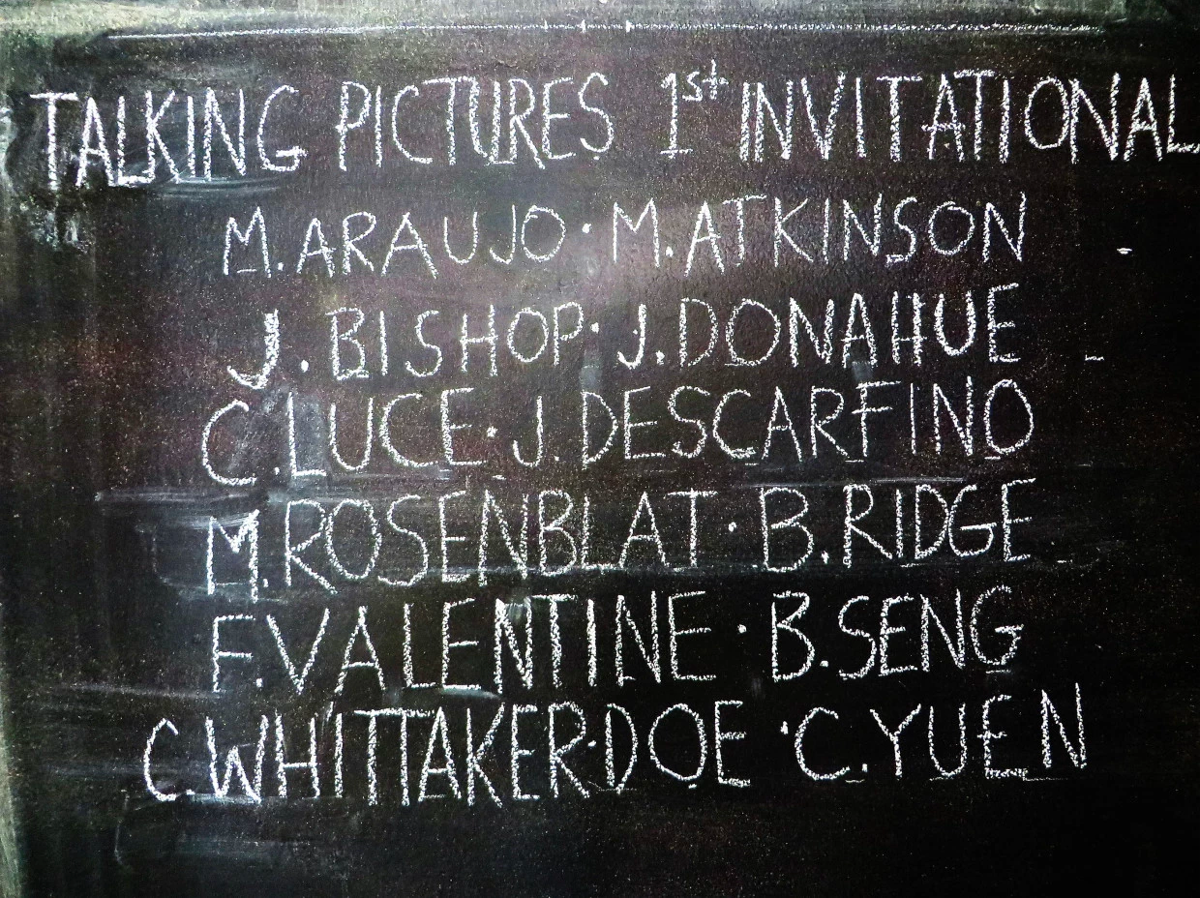 TALKING PICTURES 1st INVITATIONAL
M. ARAUJO · M. ATKINSON
J. BISHOP · J. DONAHUE
C. LUCE · J. DESCARFINO
M. ROSENBLAT · B. RIDGE
F. VALENTINE · B. SENG
C. WHITTAKER·DOE · C. YUEN